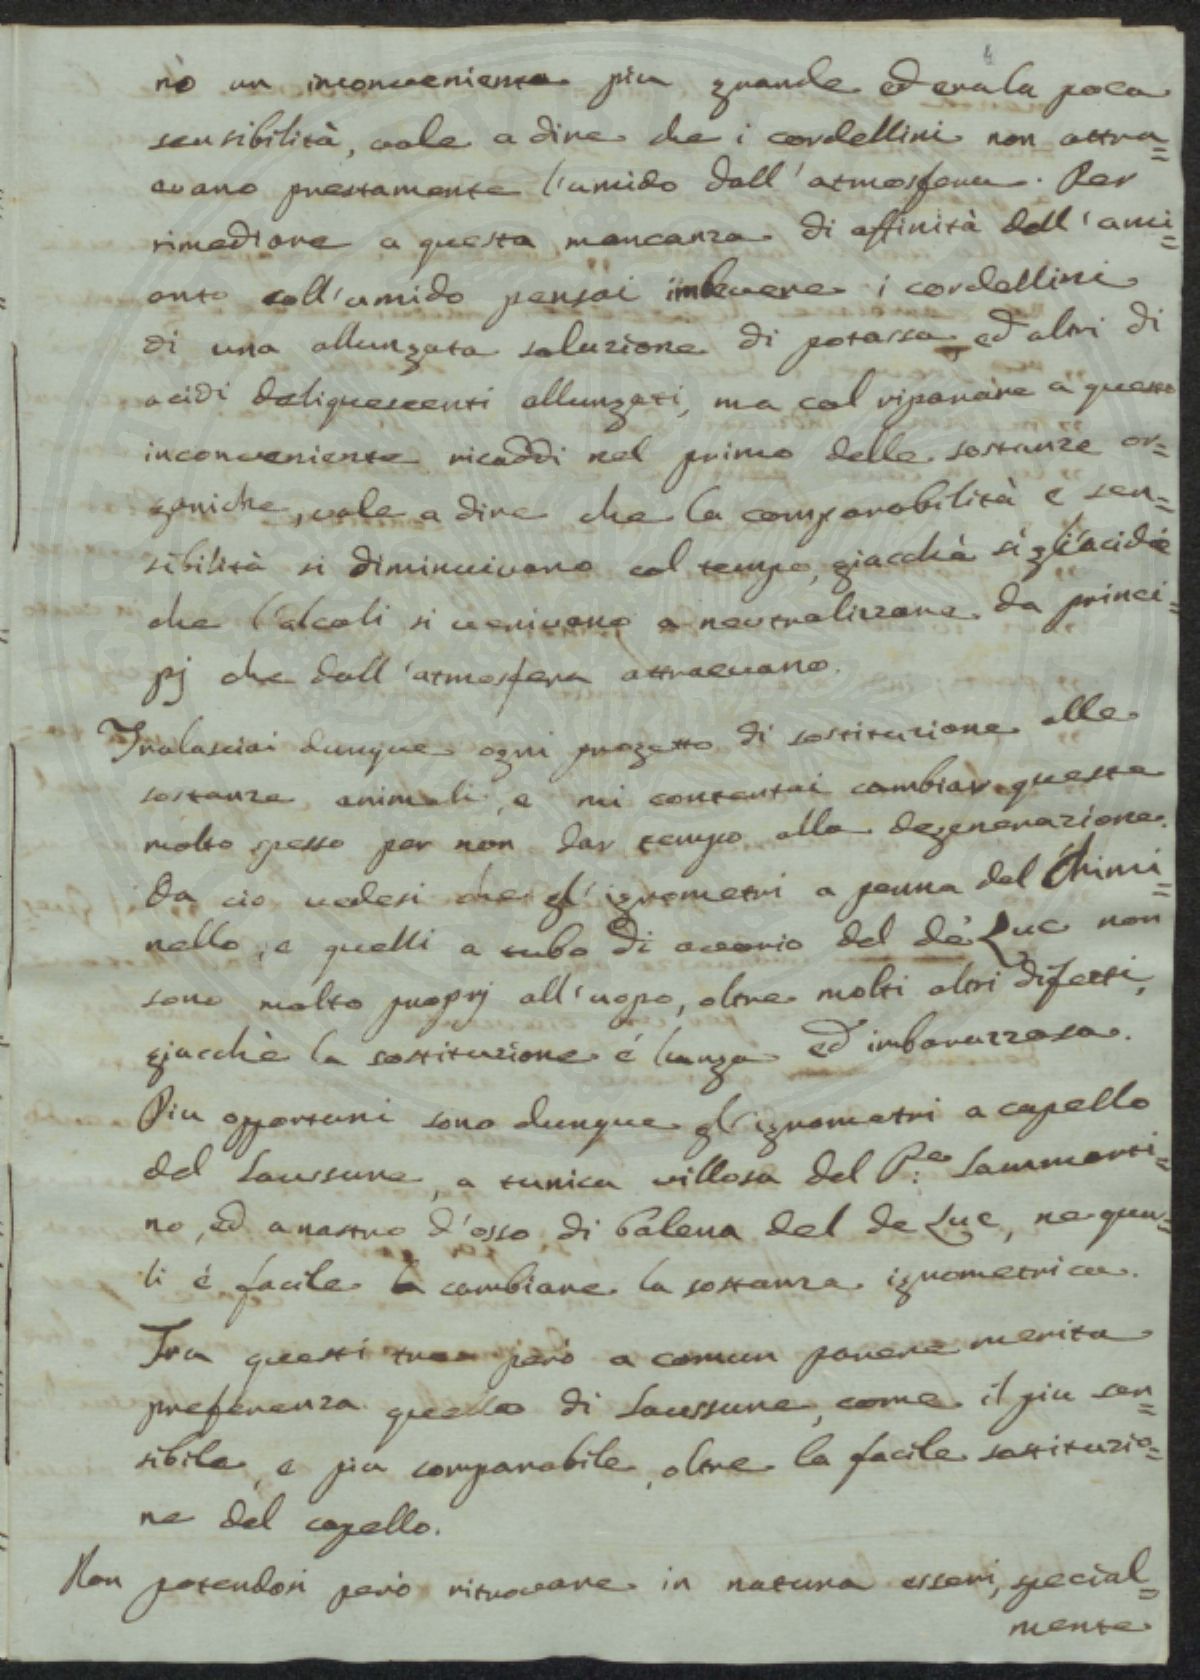 nò un inconveniente piu grande ed era la poca
sensibilità, vale a dire che i cordellini non attra=
evano prestamente l'umido dall'atmosfera. Per
rimediare a questa mancanza di affinità dell'ami=
anto coll'umido pensai imbevere i cordellini
di una allungata soluzione di potassa, ed altri di
acidi deliquescenti allungati, ma col riparare a questo
inconveniente ricaddi nel primo delle sostanze or=
ganiche, vale a dire che la comparabilità e sen=
sibilità si diminuivano col tempo, giacchè sì gli acidi
che l'alcali si venivano a neutralizzare da princi=
pj che dall'atmosfera attraevano.
Tralasciai dunque ogni progetto di sostituzione alle
sostanze animali, e mi contentai cambiar queste
molto spesso per non dar tempo alla degenerazione.
Da cio vedesi che gl'igrometri a penna del Chimi=
nello, e quelli a tubo di avorio del de Luc non
sono molto proprj all'uopo, oltre molti altri difetti,
giacchè la sostituzione é lunga ed imbarazzosa.
Piu opportuni sono dunque gl'igrometri a capello
del Saussure, a tunica villosa del P.e Sammarti=
no, ed a nastro d'osso di balena del de Luc, ne qua=
li é facile cambiare la sostanza igrometrica.
Tra questi tre però a comun parere merita
preferenza quello di Saussure, come il piu sen=
sibile, e piu comparabile, oltre la facile sostituzio=
ne del capello.
Non potendosi però ritrovare in natura esseri, special=
mente